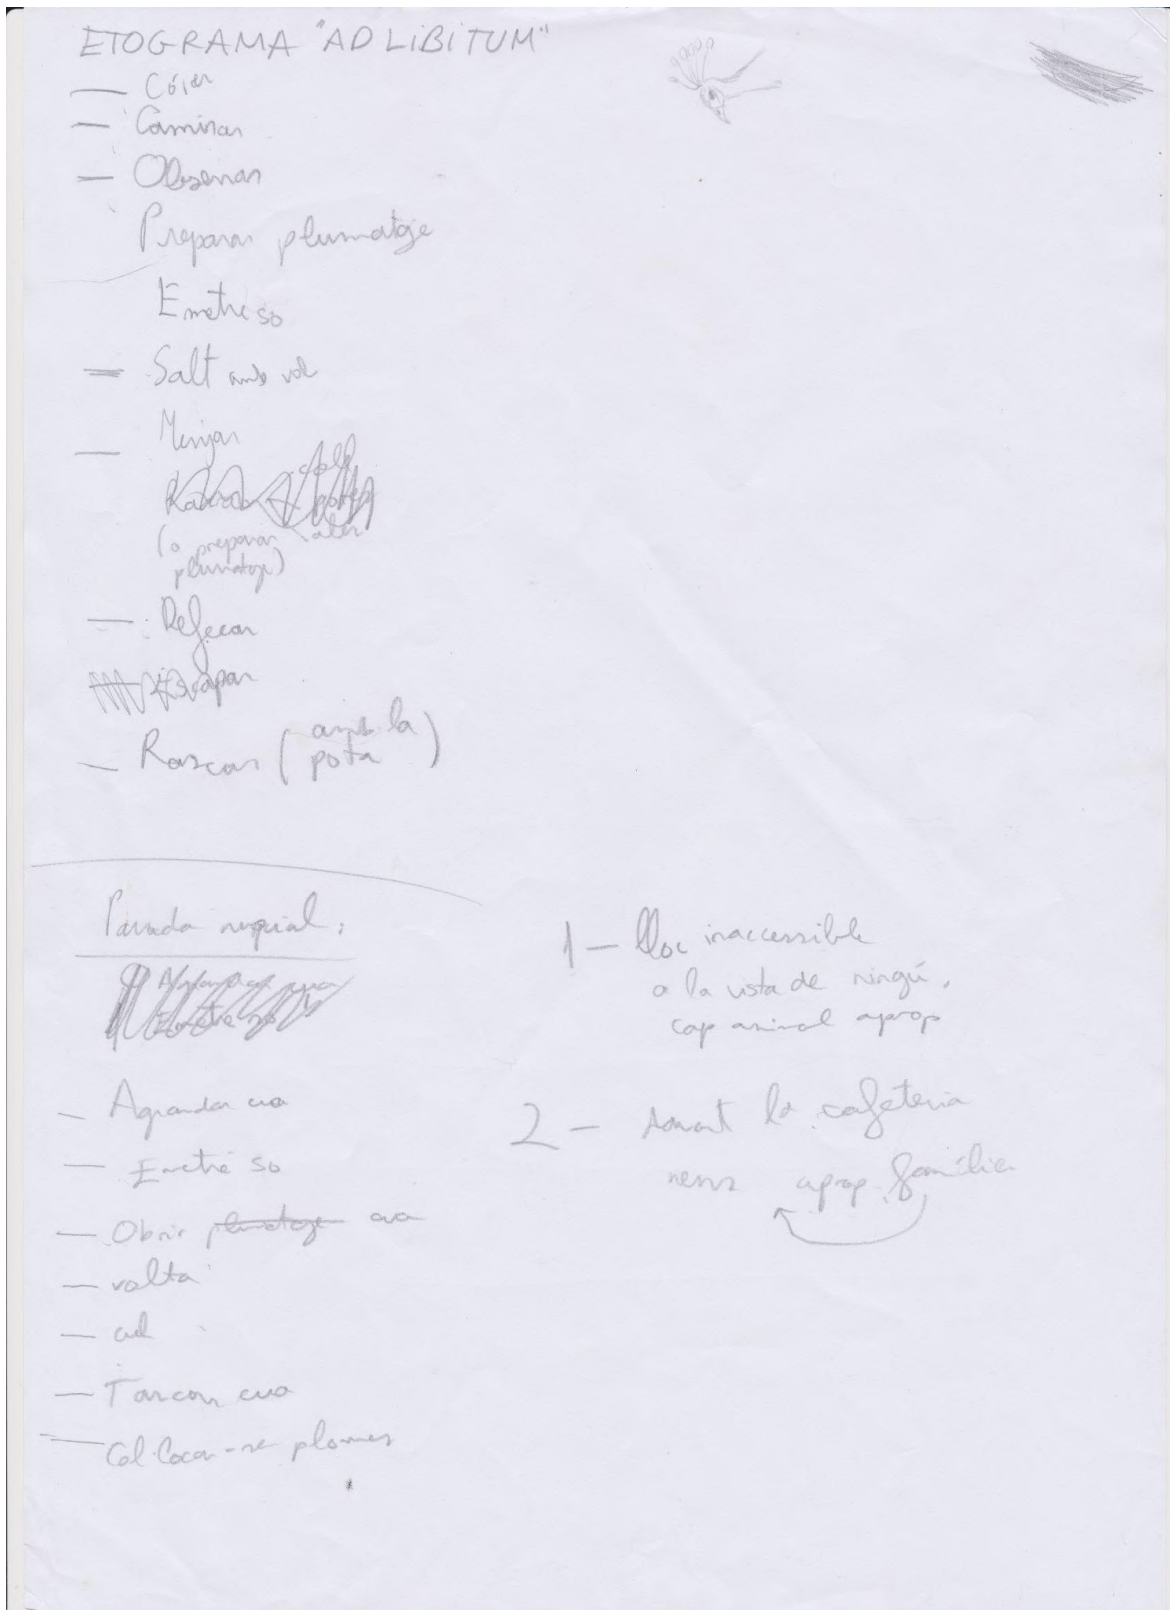 ETOGRAMA "AD LIBITUM"
— Córer
— Caminar
— Observar
Preparar plumatge
Emetre so
— Salt amb vol
— Menjar
(o preparar
plumatge)
— Defecar
Escapar
— Rascar (amb la
pota)
Parada nupcial:
Emetre so
— Agrandar cua
— Emetre so
— Obrir plumatge cua
— volta
— Tancar cua
— Col·locar-se plomes
1 — lloc inaccessible
a la vista de ningú,
cap animal aprop
2 — davant la cafeteria
nens aprop família